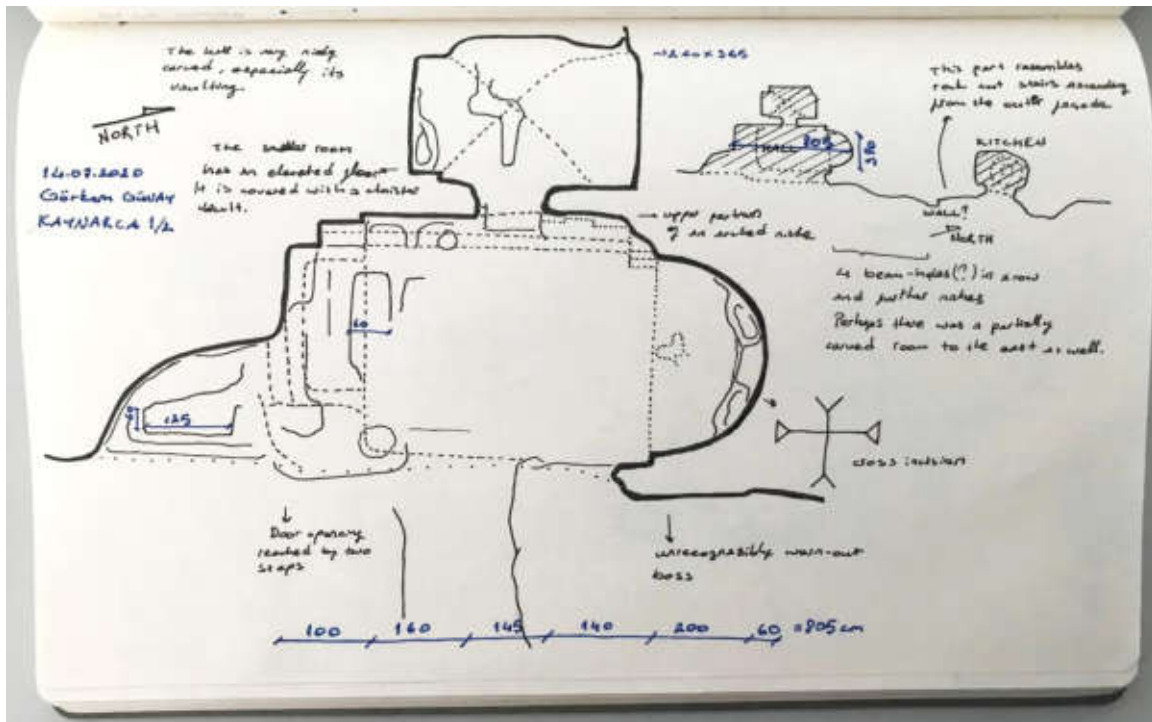 The hall is very nicely
carved, especially its
vaulting.
NORTH
14.07.2020
Görkem GÜNAY
KAYNARCA 1/2
The smaller room
has an elevated floor
It is covered with a cloister
vault.
240 x 365
This part resembles
rock cut stairs ascending
from the outer facade
HALL
805
KITCHEN
WALL?
NORTH
→ upper portions
of an arched niche
4 beam-holes(?) in a row
and further niches
Perhaps there was a partially
carved room to the east as well.
60
125
cross incision
Door opening
reached by two
steps
unrecognisibly worn-out
boss
100 160 145 140 200 60 =805 cm